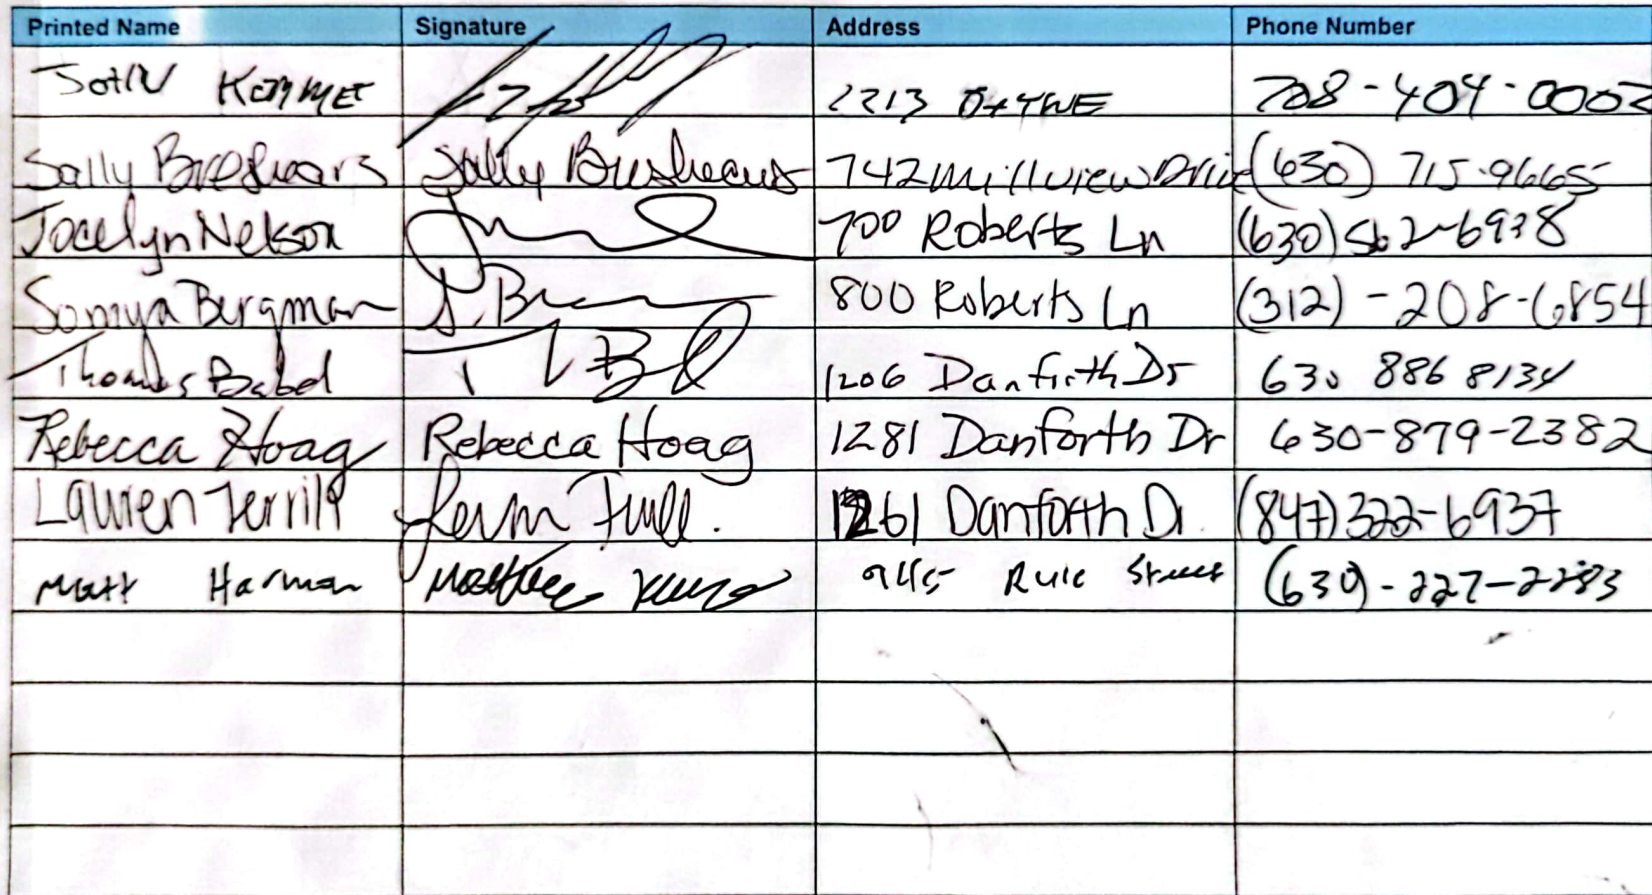 Printed Name Signature Address Phone Number
John 2213 708-404-0002
Sally Breshears Sally Breshears 742 Millview Drive (630) 715-9665
Jocelyn Nelson 700 Roberts Ln (630) 562-6938
Somya Bergman S. B 800 Roberts Ln (312)-208-6854
Thomas Babel T B 1206 Danforth Dr 630 886 8134
Rebecca Hoag Rebecca Hoag 1281 Danforth Dr 630-879-2382
Lauren Terrill 1261 Danforth Dr. (847)322-6937
Matt Harman Rule Street (630)-227-2283